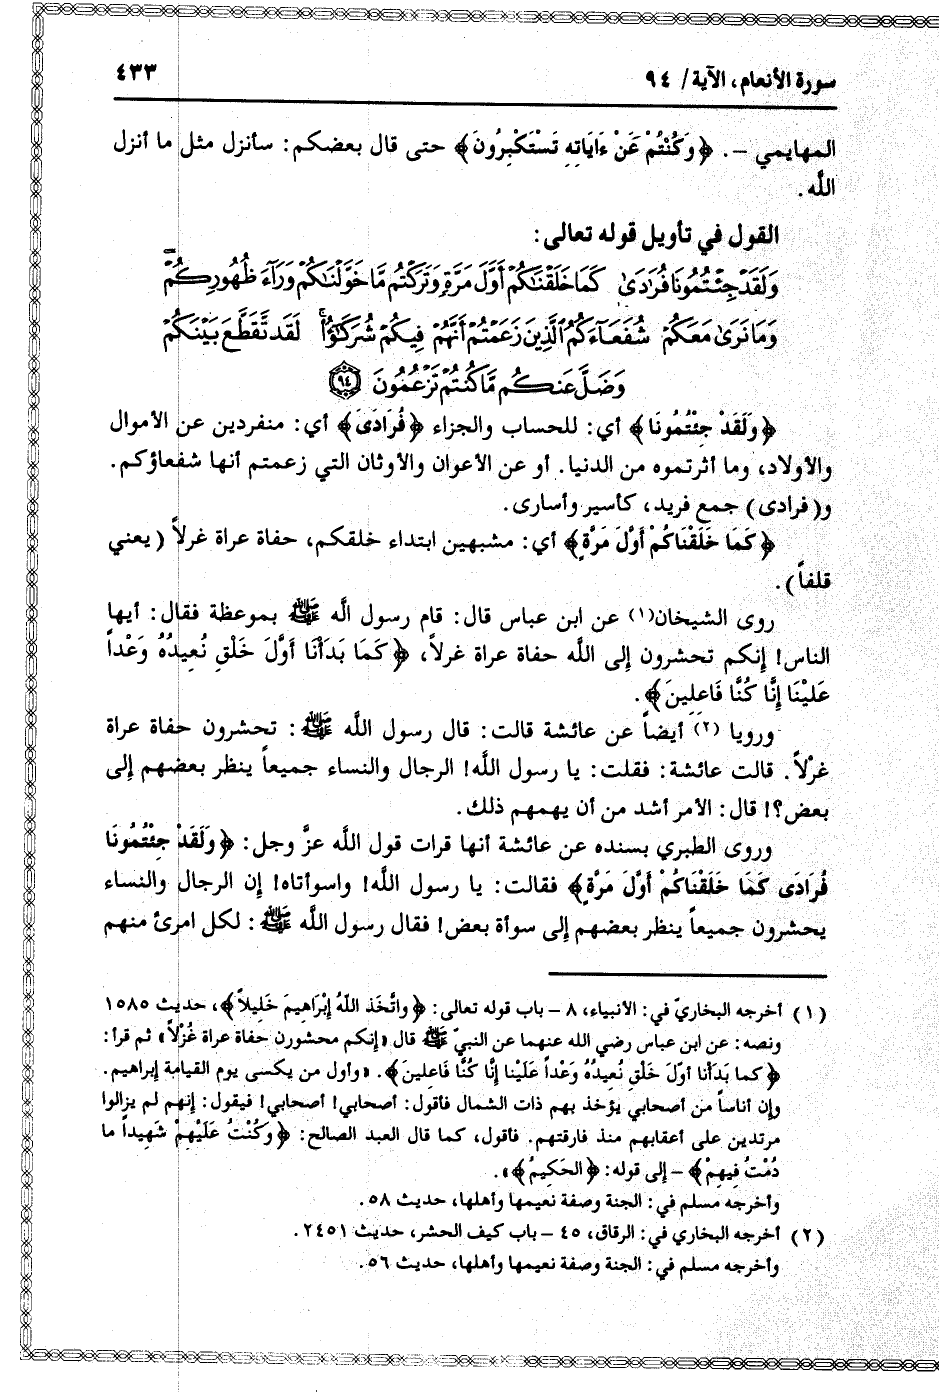 سورة الأنعام، الآية/ ٩٤
٤٣٣
المهايمي –. ﴿وَكُنْتُمْ عَنْ ءَايَاتِهِ تَسْتَكْبِرُونَ﴾ حتى قال بعضكم: سأنزل مثل ما أنزل
اللَّه.
القول في تأويل قوله تعالى:
وَلَقَدْ جِئْتُمُونَا فُرَادَىٰ كَمَا خَلَقْنَاكُمْ أَوَّلَ مَرَّةٍ وَتَرَكْتُم مَّا خَوَّلْنَاكُمْ وَرَآءَ ظُهُورِكُمْ
وَمَا نَرَىٰ مَعَكُمْ شُفَعَآءَكُمُ ٱلَّذِينَ زَعَمْتُمْ أَنَّهُمْ فِيكُمْ شُرَكَٰٓؤُا۟ لَقَد تَّقَطَّعَ بَيْنَكُمْ
وَضَلَّ عَنكُم مَّا كُنتُمْ تَزْعُمُونَ ٩٤
﴿وَلَقَدْ جِئْتُمُونَا﴾ أي: للحساب والجزاء ﴿فُرَادَىٰ﴾ أي: منفردين عن الأموال
والأولاد، وما أثرتموه من الدنيا. أو عن الأعوان والأوثان التي زعمتم أنها شفعاؤكم.
و(فرادى) جمع فريد، كأسير وأسارى.
﴿كَمَا خَلَقْنَاكُمْ أَوَّلَ مَرَّةٍ﴾ أي: مشبهين ابتداء خلقكم، حفاة عراة غرلاً (يعني
قلفاً).
روى الشيخان(١) عن ابن عباس قال: قام رسول الَّه ﷺ بموعظة فقال: أيها
الناس! إنكم تحشرون إلى اللَّه حفاة عراة غرلاً، ﴿كَمَا بَدَأْنَا أَوَّلَ خَلْقٍ نُعِيدُهُ وَعْداً
عَلَيْنَا إِنَّا كُنَّا فَاعِلِينَ﴾.
ورويا (٢) أيضاً عن عائشة قالت: قال رسول اللَّه ﷺ: تحشرون حفاة عراة
غرْلاً. قالت عائشة: فقلت: يا رسول اللَّه! الرجال والنساء جميعاً ينظر بعضهم إلى
بعض؟! قال: الأمر أشد من أن يهمهم ذلك.
وروى الطبري بسنده عن عائشة أنها قرات قول اللَّه عزَّ وجل: ﴿وَلَقَدْ جِئْتُمُونَا
فُرَادَى كَمَا خَلَقْنَاكُمْ أَوَّلَ مَرَّةٍ﴾ فقالت: يا رسول اللَّه! واسوأتاه! إن الرجال والنساء
يحشرون جميعاً ينظر بعضهم إلى سوأة بعض! فقال رسول اللَّه ﷺ: لكل امرئ منهم
(١) أخرجه البخاريّ في: الانبياء، ٨ – باب قوله تعالى: ﴿وَاتَّخَذَ اللّهُ إِبْرَاهِيمَ خَلِيلاً﴾، حديث ١٥٨٥
ونصه: عن ابن عباس رضي الله عنهما عن النبيّ ﷺ قال «إنكم محشورون حفاة عراة غُرْلاً» ثم قرأ:
﴿كما بَدَأنا أوّلَ خَلْقٍ نُعيدُهُ وَعْداً عَلَيْنا إنَّا كُنَّا فَاعِلينَ﴾. «وأول من يكسى يوم القيامة إبراهيم.
وإن أناساً من أصحابي يؤخذ بهم ذات الشمال فأقول: أصحابي! أصحابي! فيقول: إنهم لم يزالوا
مرتدين على أعقابهم منذ فارقتهم. فأقول، كما قال العبد الصالح: ﴿وَكُنْتُ عَلَيْهِمْ شَهِيداً ما
دُمْتُ فِيهِمْ﴾ – إلى قوله: ﴿الحَكِيمُ﴾».
وأخرجه مسلم في: الجنة وصفة نعيمها وأهلها، حديث ٥٨.
(٢) أخرجه البخاري في: الرقاق، ٤٥ – باب كيف الحشر، حديث ٢٤٥١.
وأخرجه مسلم في: الجنة وصفة نعيمها وأهلها، حديث ٥٦.